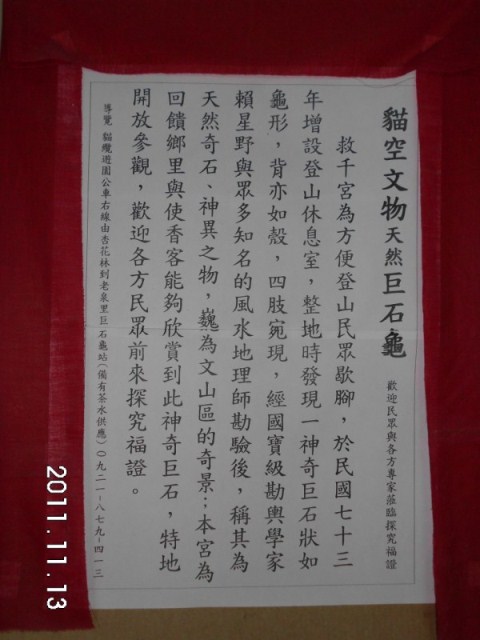 貓空文物天然巨石龜 歡迎民眾與各方專家蒞臨探究福證
救千宮為方便登山民眾歇腳,於民國七十三
年增設登山休息室,整地時發現一神奇巨石狀如
龜形,背亦如殼,四肢宛現,經國寶級勘輿學家
賴星野與眾多知名的風水地理師勘驗後,稱其為
天然奇石、神異之物,巍為文山區的奇景;本宮為
回饋鄉里與使香客能夠欣賞到此神奇巨石,特地
開放參觀,歡迎各方民眾前來探究福證。
導覽 貓纜遊園公車右線由杏花林到老泉里巨石龜站(備有茶水供應)〇九二一-八七九-四一三
2011.11.13